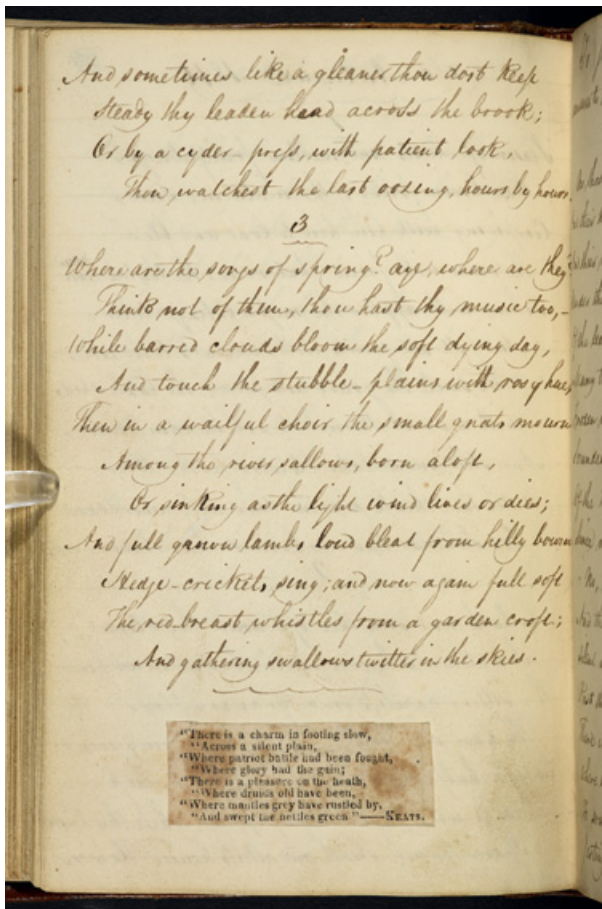 And sometimes like a gleaner thou dost keep
Steady thy leaden head across the brook;
Or by a cyder-press, with patient look,
Thou watchest the last oozing, hours by hours.
3
Where are the songs of spring? aye, where are they?
Think not of them, thou hast thy music too,—
While barred clouds bloom the soft dying day,
And touch the stubble-plains with rosy hue,
Then in a wailful choir the small gnats mourn
Among the river sallows, born aloft,
Or sinking as the light wind lives or dies;
And full grown lambs loud bleat from hilly bourn
Hedge-crickets sing; and now again full soft
The red-breast whistles from a garden croft;
And gathering swallows twitter in the skies.
"There is a charm in footing slow,
"Across a silent plain,
"Where patriot battle had been fought,
"Where glory had the gain;
"There is a pleasure on the heath,
"Where druids old have been,
"Where mantles grey have rustled by,
"And swept the nettles green."——KEATS.